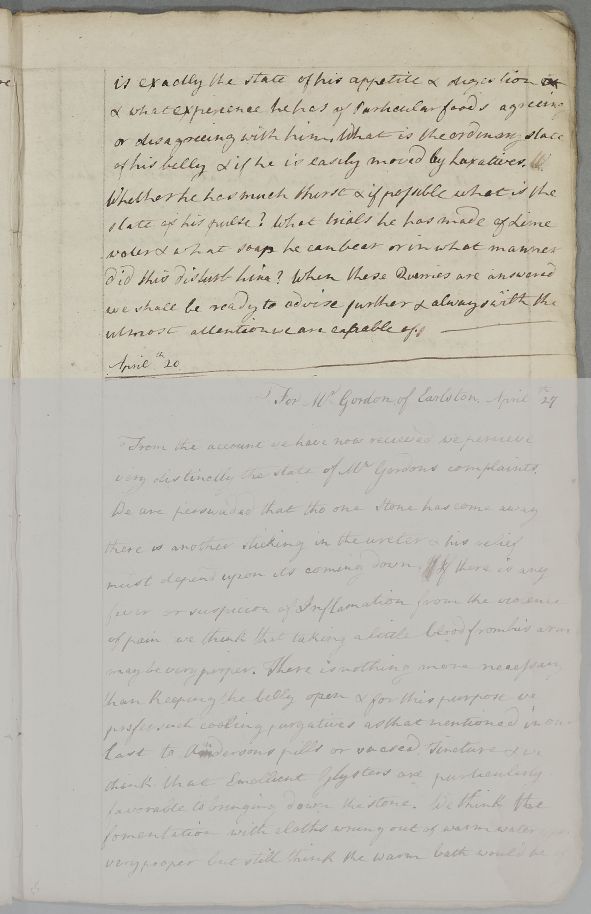 is exactly the state of his appetite & digestion
& what experience he has of Particular foods agreeing
or disagreeing with him. What is the ordinary state
of his belly & if he is easily moved by Laxatives.
Whether he has much thirst & if possible what is the
state of his pulse? What trials he has made of Lime
water & what soap he can bear or in what manner
did this disturb him? When these Querries are answered
we shall be ready to advise further & always with the
utmost attention we are capable of.
April 20th
For Mr Gordon of Earlston. April 27th
From the account we have now received we perceive
very distinctly the state of Mr Gordons complaints.
We are persuaded that tho one Stone has come away
there is another sticking in the ureter & his relief
must depend upon its coming down. If there is any
fever or suspicion of Inflamation from the violence
of pain we think that taking a little blood from his arm
may be very proper. There is nothing more necessary
than keeping the belly open & for this purpose we
prefer such cooling purgatives as that mentioned in our
last to Andersons pills or Tincture & we
think that Emollient Glysters are particularly
favorable to bringing down the stone. We think the
fomentation with cloths wrung out of warm water
very proper but still think the warm bath would be